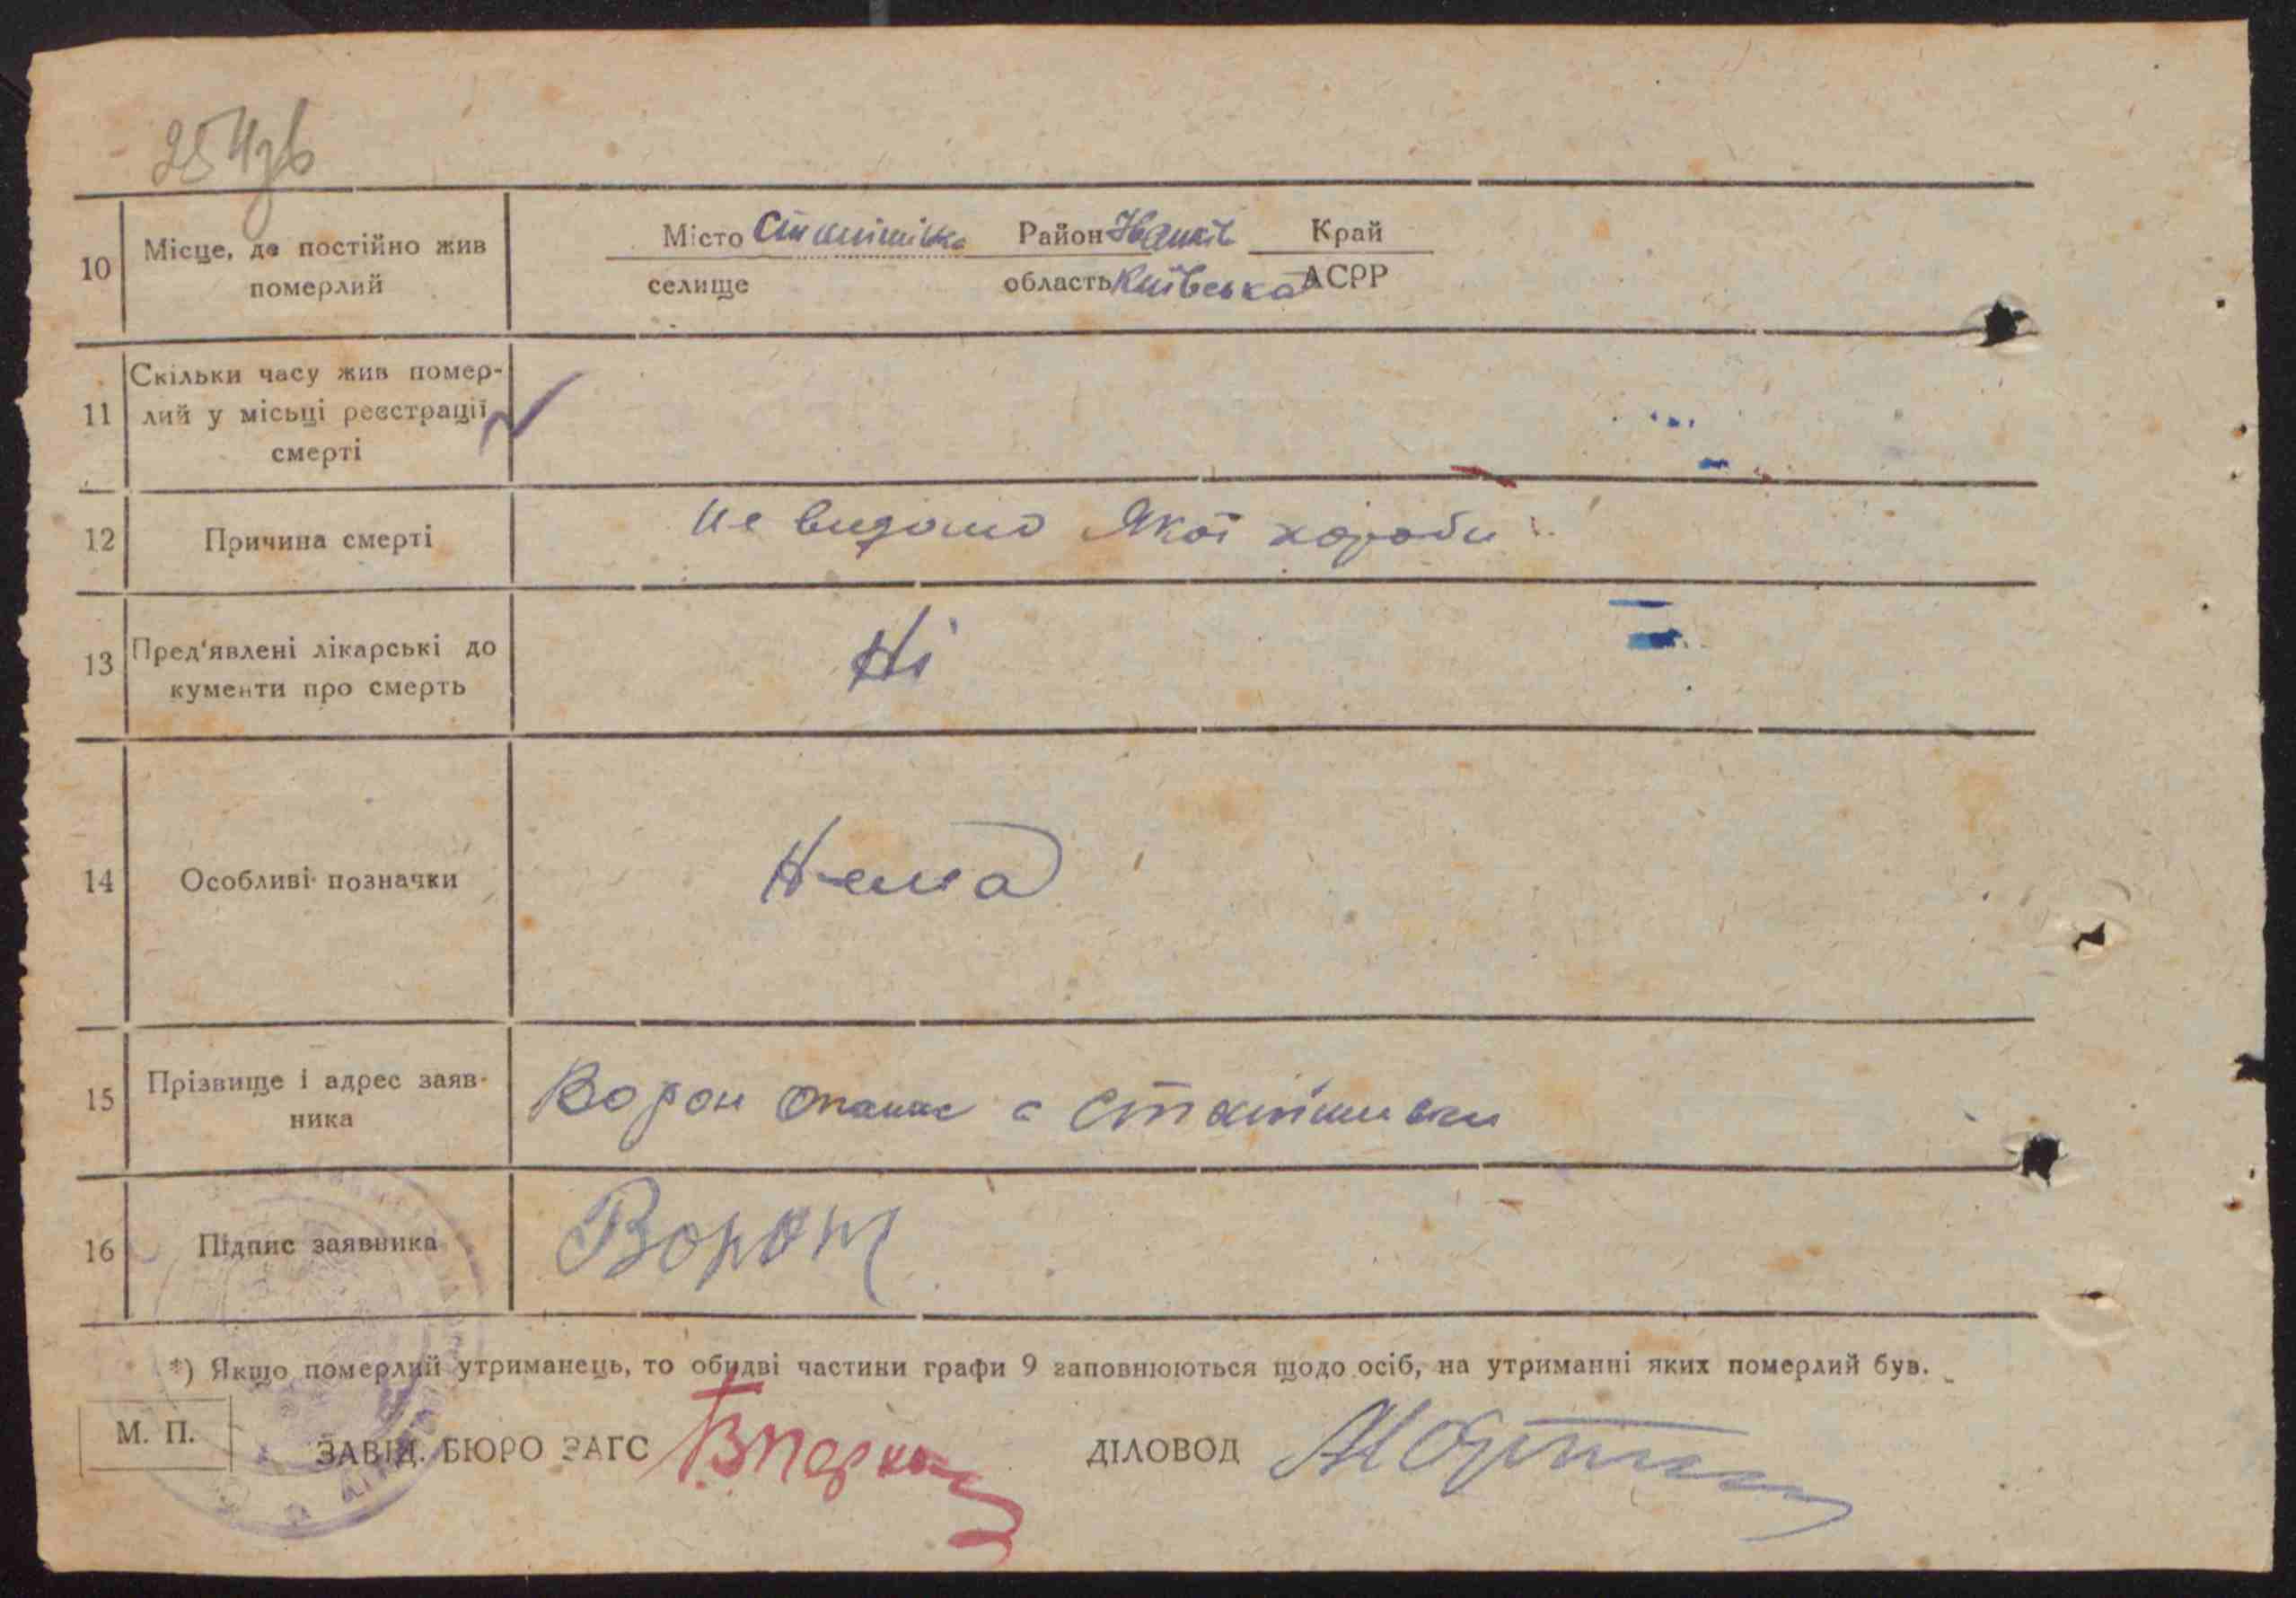 254зв
10 Місце, де постійно жив померлий
Місто Станишівка Район Іванків Край
селище область Київська АСРР
11 Скільки часу жив помер-
лий у місьці реєстрації
смерті
12 Причина смерті Не видомо Якої хороби
13 Пред'явлені лікарські до
кументи про смерть Ні
14 Особливі позначки Нема
15 Прізвище і адрес заяв-
ника Ворон Опанас с Станишивки
16 Підпис заявника Ворон
*) Якщо померлий утриманець, то обидві частини графи 9 заповнюються щодо осіб, на утриманні яких померлий був.
М. П.
ЗАВІД. БЮРО ЗАГС ДІЛОВОД